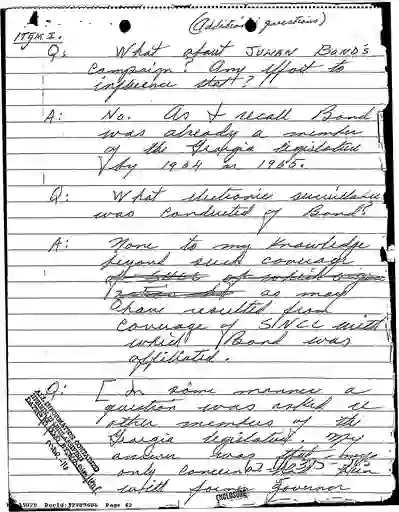 (Additional questions)
ITEM I.
Q: What about JULIAN BOND'S
campaign? Any effort to
influence that?
A: No. As I recall Bond
was already a member
of the Georgia legislature
by 1964 or 1965.
Q: What electronic surveillance
was conducted of Bond?
A: None to my knowledge
beyond such coverage
as may
have resulted from
coverage of SNCC with
which Bond was
affiliated.
Q: [In some manner a
question was asked re
other members of the
Georgia legislature. My
answer was that my
only concern
with former Governor
ALL INFORMATION CONTAINED
ENCLOSURE
DocId: Page 62